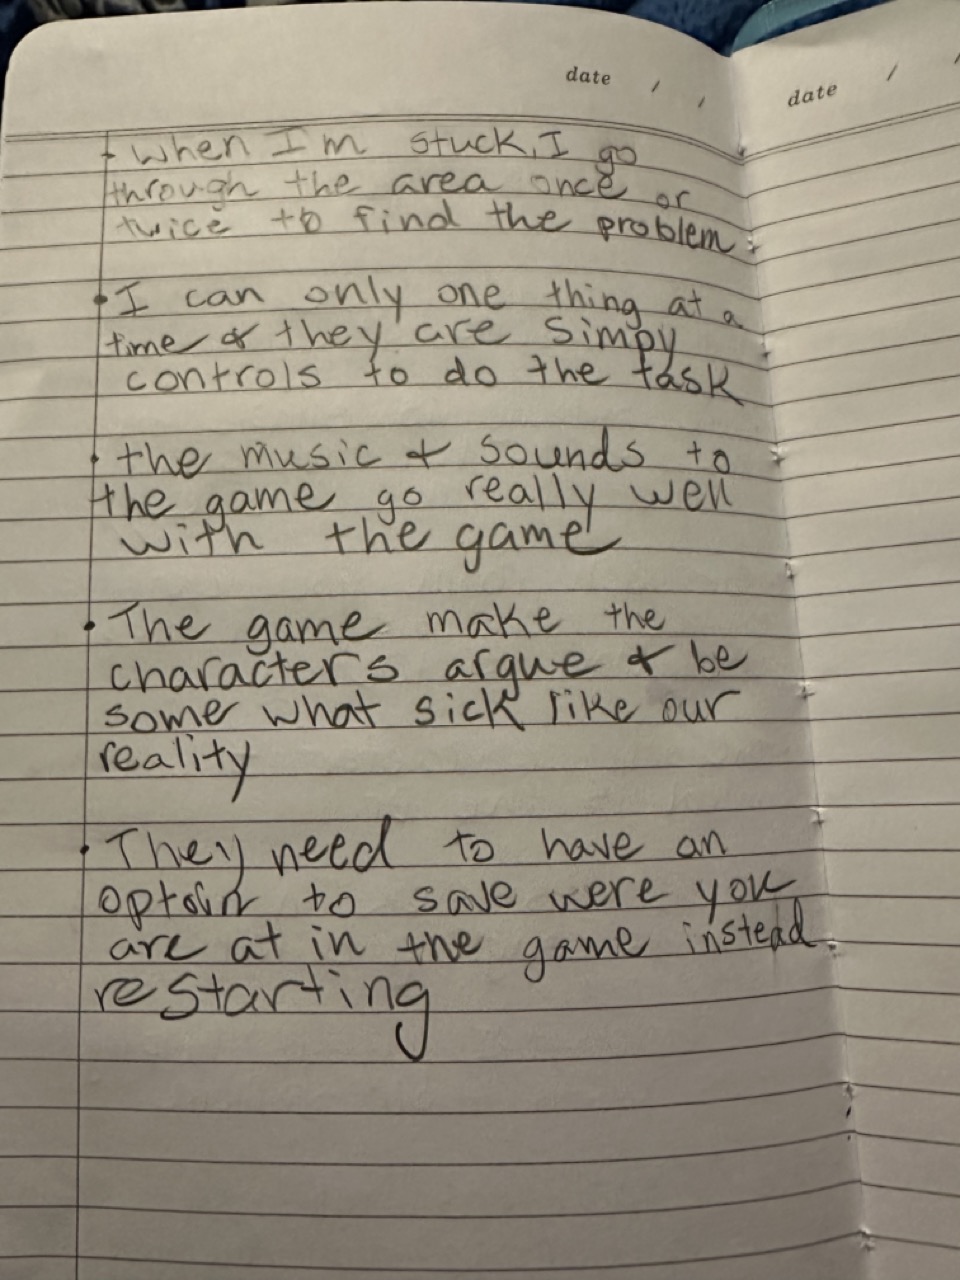 date / /
date /
- When I'm stuck, I go
through the area once or
twice to find the problem
• I can only one thing at a
time & they are simpy
controls to do the task
• the music & sounds to
the game go really well
with the game
• The game make the
characters argue & be
some what sick like our
reality
• They need to have an
optoin to save were you
are at in the game instead
restarting